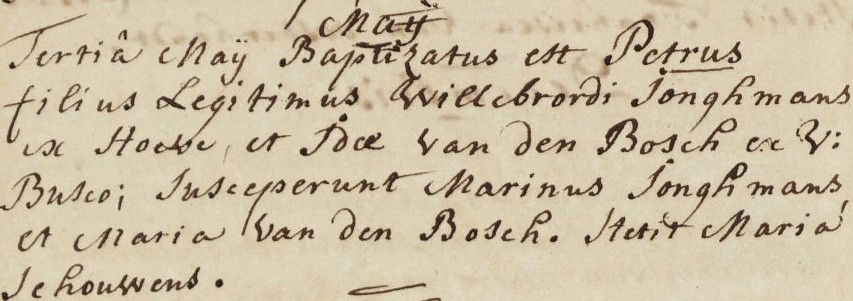 Maÿ
Tertiâ Maÿ Baptizatus est Petrus
filius Legitimus Willebrordi Jonghmans
ex Hoeve, et Idæ van den Bosch ex V:
Busco; Susceperunt Marinus Jonghmans
et Maria van den Bosch. Stetit Maria
Schouwens.